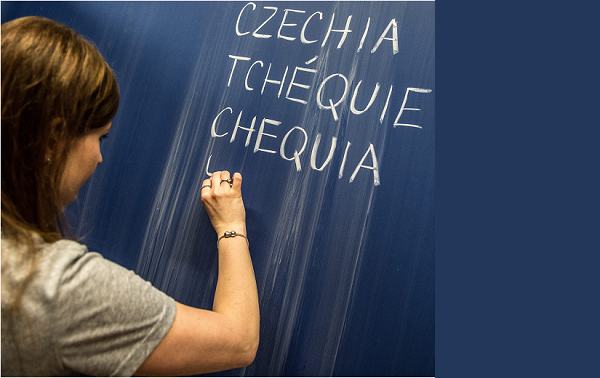 CZECHIA
TCHÉQUIE
CHEQUIA